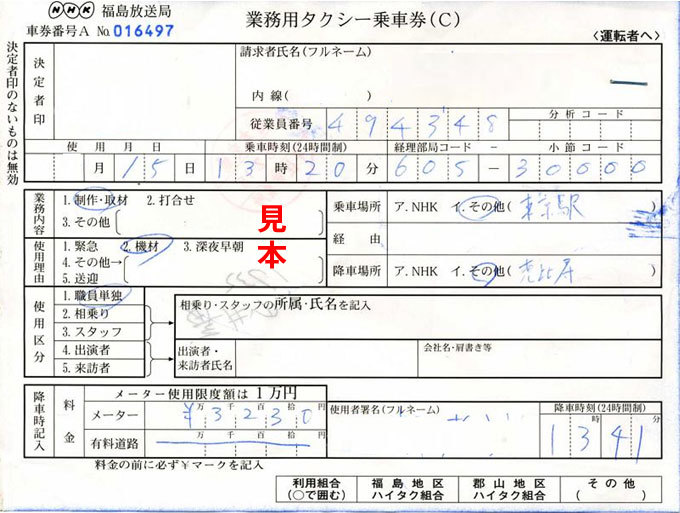 NHK 福島放送局
業務用タクシー乗車券(C)
車券番号A No. 016497
<運転者へ>
決定者印のないものは無効
決定者印
請求者氏名(フルネーム)
内線( )
従業員番号 494348
分析コード
使用月日 乗車時刻(24時間制) 経理部局コード － 小節コード
月 15 日 13 時 20 分 605 － 30000
業務内容
1.制作・取材 2.打合せ
3.その他
見本
乗車場所 ア.NHK イ.その他(東京駅)
経由
降車場所 ア.NHK イ.その他(恵比寿)
使用理由
1.緊急 2.機材 3.深夜早朝
4.その他→
5.送迎
使用区分
1.職員単独
2.相乗り
3.スタッフ
4.出演者
5.来訪者
相乗り・スタッフの所属・氏名を記入
出演者・来訪者氏名
会社名・肩書き等
降車時記入
料金
メーター使用限度額は1万円
メーター 万 千 百 拾 円
¥3230
有料道路 万 千 百 拾 円
使用者署名(フルネーム)
降車時刻(24時間制)
時 分
1341
料金の前に必ず¥マークを記入
利用組合(○で囲む)
福島地区ハイタク組合
郡山地区ハイタク組合
その他( )